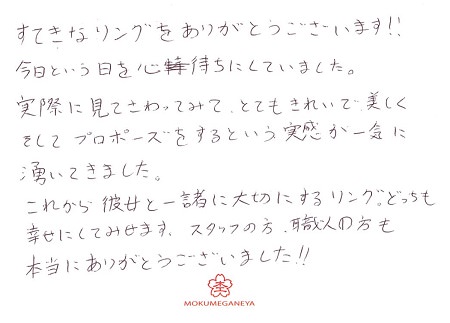 すてきなリングをありがとうございます!!
今日という日を心待ちにしていました。
実際に見てさわってみて、とてもきれいで、美しく
そして プロポーズをするという実感が一気に
湧いてきました。
これから彼女と一諸に大切にするリング。どっちも
幸せにしてみせます。スタッフの方、職人の方も
本当にありがとうございました!!
MOKUMEGANEYA